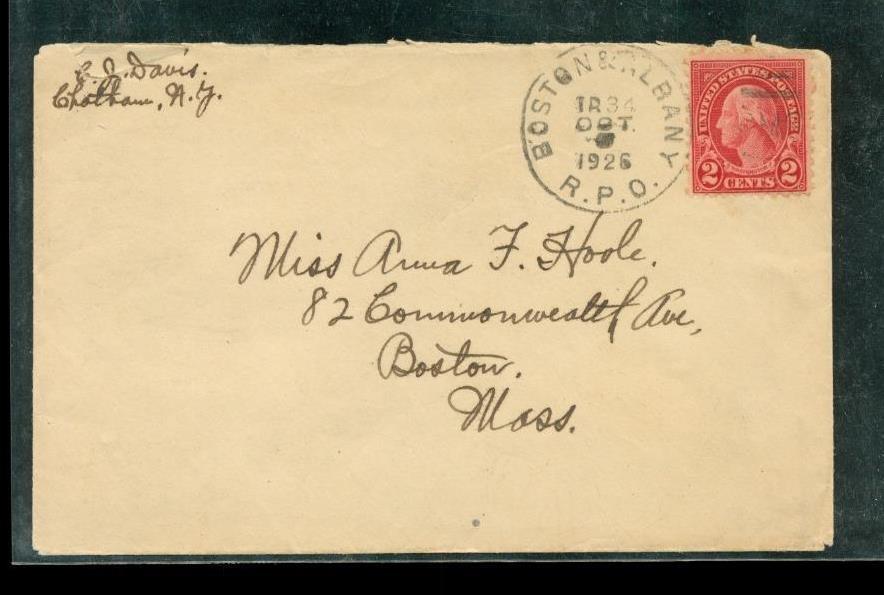 C. J. Davis.
Chatham, N.Y.
BOSTON & ALBANY
TR34
OCT.
1926
R.P.O.
UNITED STATES POSTAGE
2 CENTS 2
Miss Anna F. Hoole.
82 Commonwealth Ave,
Boston.
Mass.